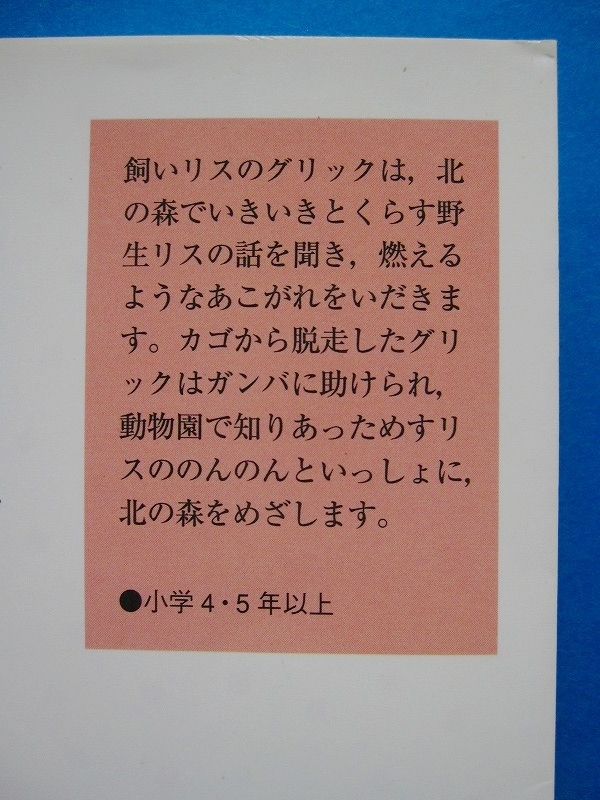 飼いリスのグリックは，北
の森でいきいきとくらす野
生リスの話を聞き，燃える
ようなあこがれをいだきま
す。カゴから脱走したグリ
ックはガンバに助けられ，
動物園で知りあっためすリ
スののんのんといっしょに，
北の森をめざします。
●小学4・5年以上